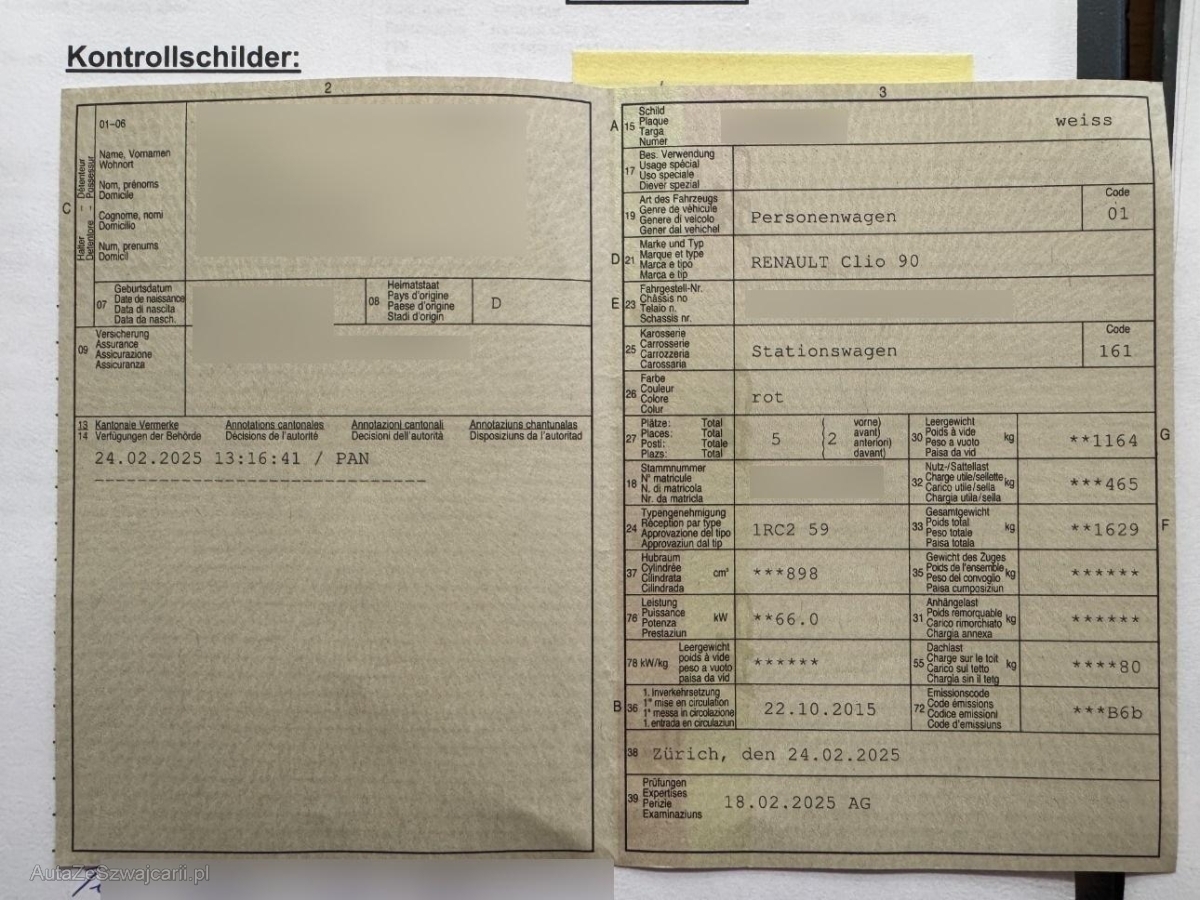 Kontrollschilder:
2
C
Halter – Détenteur
Detentore – Possessur
01–06
Name, Vornamen
Wohnort
Nom, prénoms
Domicile
Cognome, nomi
Domicilio
Num, prenums
Domicil
07
Geburtsdatum
Date de naissance
Data di nascita
Data da nasch.
08
Heimatstaat
Pays d'origine
Paese d'origine
Stadi d'origin
D
09
Versicherung
Assurance
Assicurazione
Assicuranza
13 Kantonale Vermerke Annotations cantonales Annotazioni cantonali Annotaziuns chantunalas
14 Verfügungen der Behörde Décisions de l'autorité Decisioni dell'autorità Disposiziuns da l'autoritad
24.02.2025 13:16:41 / PAN
3
A 15
Schild
Plaque
Targa
Numer
weiss
17
Bes. Verwendung
Usage spécial
Uso speciale
Diever spezial
19
Art des Fahrzeugs
Genre de véhicule
Genere di veicolo
Gener dal vehichel
Personenwagen
Code
01
D 21
Marke und Typ
Marque et type
Marca e tipo
Marca e tip
RENAULT Clio 90
E 23
Fahrgestell-Nr.
Châssis no
Telaio n.
Schassis nr.
25
Karosserie
Carrosserie
Carrozzeria
Carossaria
Stationswagen
Code
161
26
Farbe
Couleur
Colore
Colur
rot
27
Plätze: Total
Places: Total
Posti: Totale
Plazs: Total
5
( vorne)
( avant)
( anteriori)
( davant)
2
30
Leergewicht
Poids à vide
Peso a vuoto
Paisa da vid
kg
**1164
G
18
Stammnummer
N° matricule
N. di matricola
Nr. da matricla
32
Nutz-/Sattellast
Charge utile/sellette
Carico utile/sella
Chargia utila/sella
kg
***465
24
Typengenehmigung
Réception par type
Approvazione del tipo
Approvaziun dal tip
1RC2 59
33
Gesamtgewicht
Poids total
Peso totale
Paisa totala
kg
**1629
F
37
Hubraum
Cylindrée
Cilindrata
Cilindrada
cm³
***898
35
Gewicht des Zuges
Poids de l'ensemble
Peso del convoglio
Paisa cumposiziun
kg
******
76
Leistung
Puissance
Potenza
Prestaziun
kW
**66.0
31
Anhängelast
Poids remorquable
Carico rimorchiato
Chargia annexa
kg
******
78 kW/kg
Leergewicht
poids à vide
peso a vuoto
paisa da vid
******
55
Dachlast
Charge sur le toit
Carico sul tetto
Chargia sin il tetg
kg
****80
B 36
1. Inverkehrsetzung
1re mise en circulation
1a messa in circolazione
1. entrada en circulaziun
22.10.2015
72
Emissionscode
Code émissions
Codice emissioni
Code d'emissiuns
***B6b
38
Zürich, den 24.02.2025
39
Prüfungen
Expertises
Perizie
Examinaziuns
18.02.2025 AG
AutaZeSzwajcarii.pl